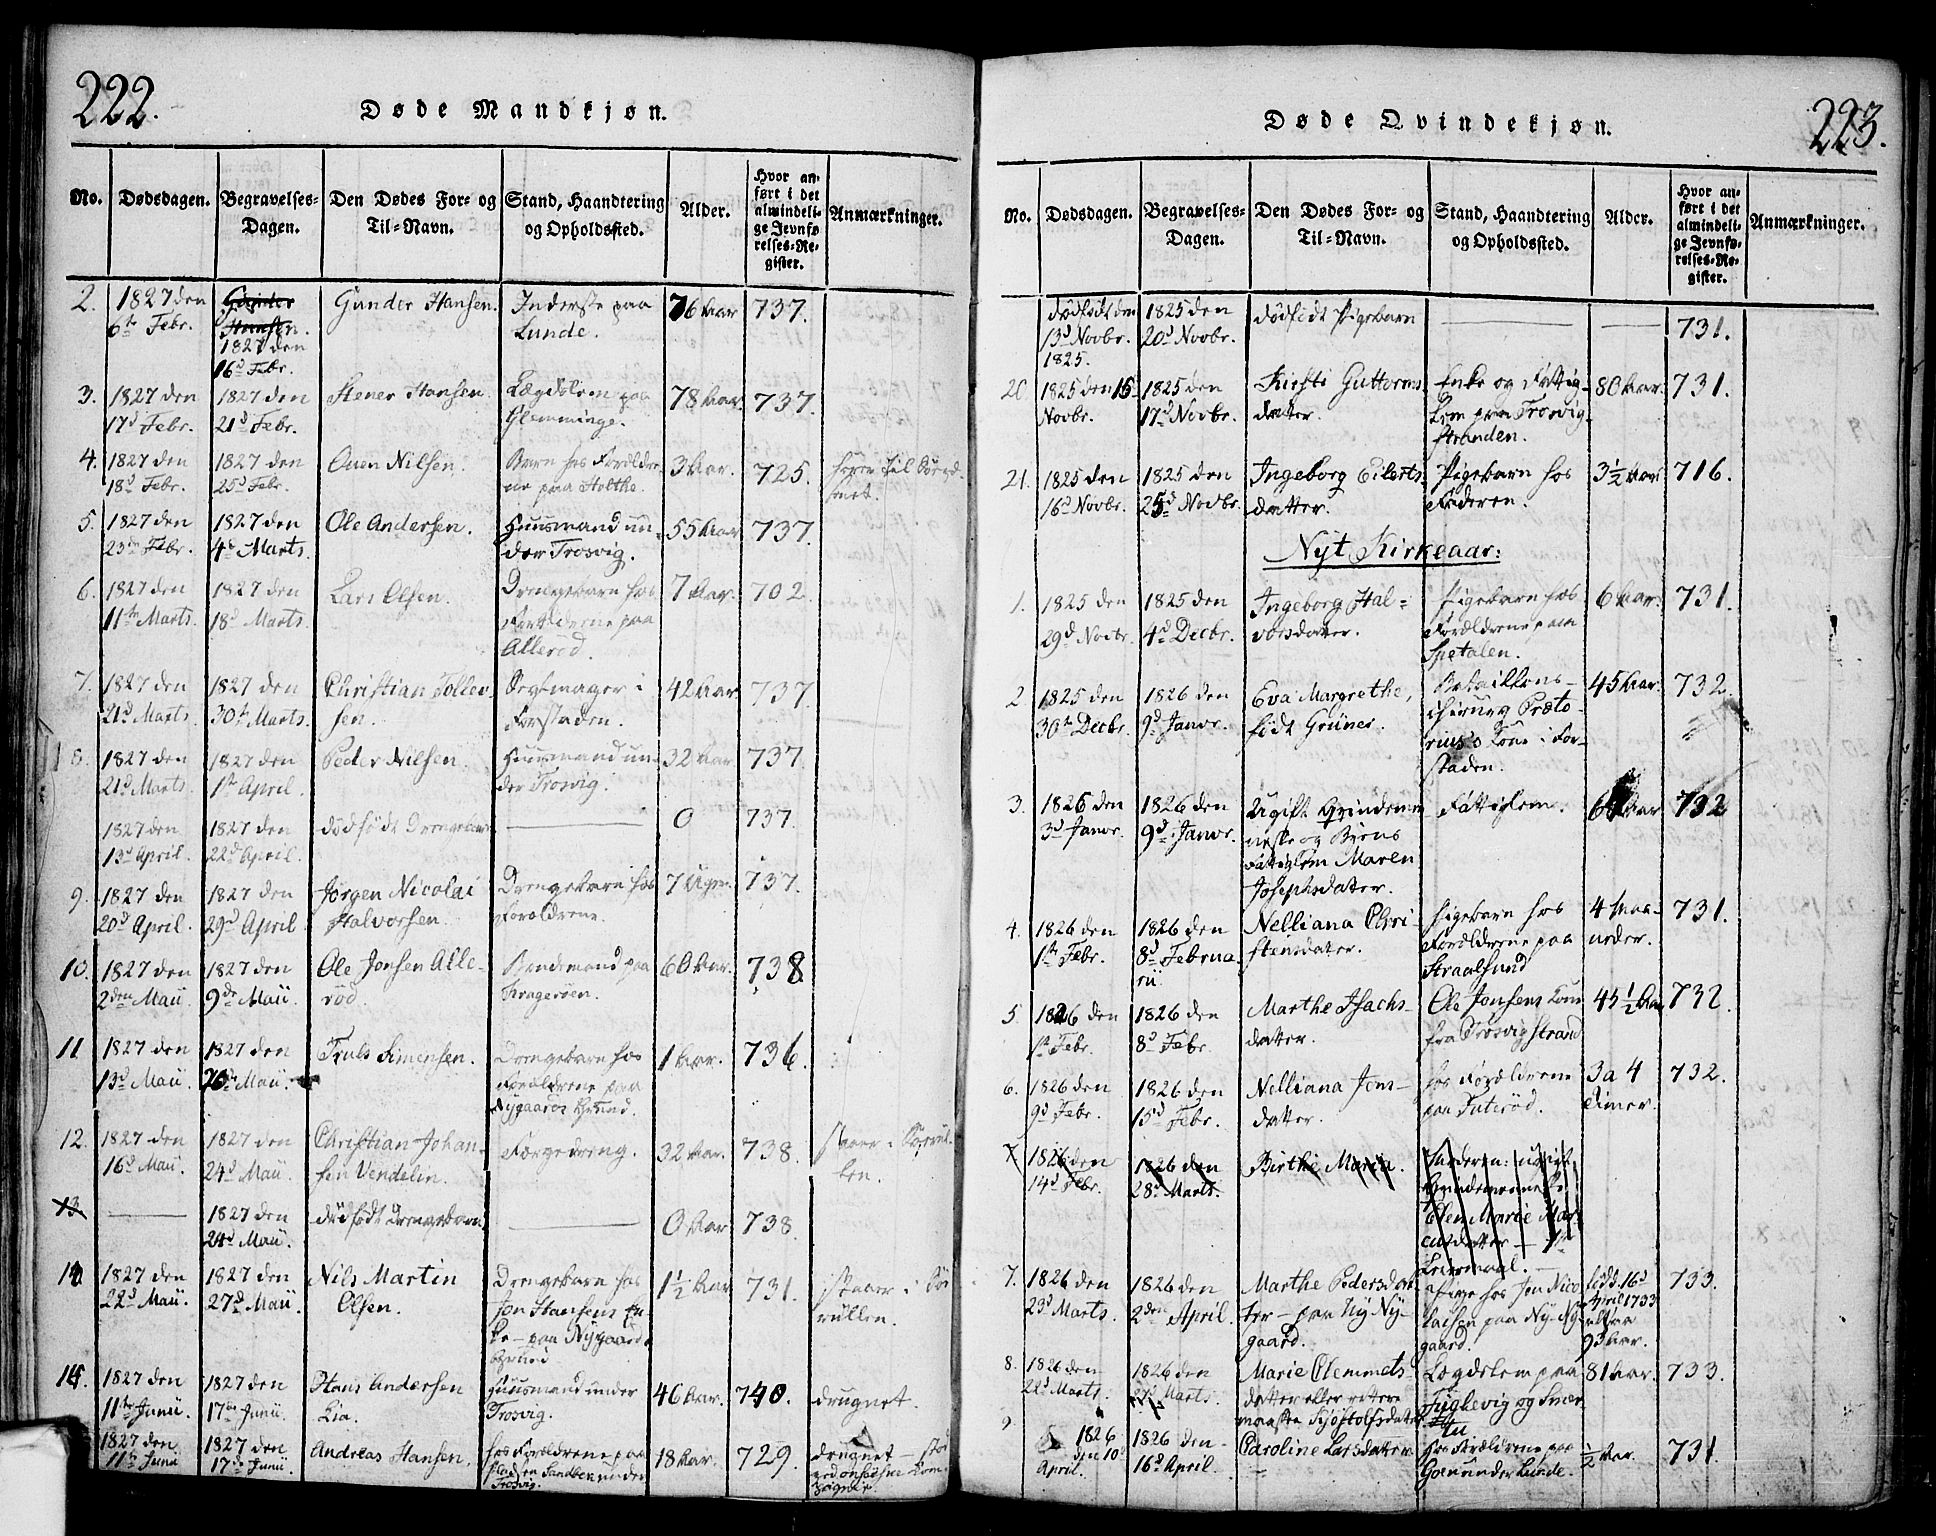 222.
Døde Mandkjøn.
No. Dødsdagen. Begravelses-Dagen. Den Dødes For- og Til-Navn. Stand, Haandtering og Opholdssted. Alder. Hvor anført i det almindelige Jevnførelses-Register. Anmærkninger.
2. 1827 den 6te Febr. Gunder Hansen. 1827 den 16d Febr. Gunder Hansen. Inderste paa Lunde. 76 Aar 737.
3. 1827 den 17d Febr. 1827 den 21d Febr. Stener Hansen. Lægdslem paa Glemminge. 78 Aar. 737.
4. 1827 den 18d Febr. 1827 den 25d Febr. Nilsen. Barn hos Forældrene paa Holthe. 3 Aar. 725.
5. 1827 den 23de Febr. 1827 den 4d Marts. Ole Andersen. Huusmand under Trosvig. 55 Aar 737.
6. 1827 den 11te Marts. 1827 den 18d Marts. Lars Olsen. Drengebarn hos Forældrene paa Allerød. 7 Aar. 702.
7. 1827 den 21d Marts. 1827 den 30te Marts. Christian Tollevsen. i Forstaden. 42 Aar 737.
8. 1827 den 21d Marts. 1827 den 1ste April. Peder Nilsen. Huusmand under Trosvig. 32 Aar. 737.
1827 den 13d April. 1827 den 22d April. dødfødt Drengebarn — 0 737.
9. 1827 den 20d April. 1827 den 29d April. Jørgen Nicolai Halvorsen. Drengebarn hos Forældrene. 7 Ugr. 737.
10. 1827 den 2den Maii. 1827 den 9de Maii. Ole Jonsen Allerød. Bondemand paa Kragerøen. 60 Aar. 738
11 1827 den 13d Maii. 1827 den Maii. Truls Simensen. Drengebarn hos Forældrene paa Nygaards Grund. 1 Aar. 736.
12. 1827 den 16d Maii. 1827 den 24d Maii. Christian Johansen Vendelin. Farvedreng. 32 Aar. 738. staaer i
13. — 1827 den 24d Maii. dødfødt Drengebarn — 0 Aar 738.
14 1827 den 22d Maii. 1827 den 27d Maii. Nils Martin Olsen. Drengebarn hos Jon Hansens Enke – paa Nygaards Grund 1½ Aar 731. staaer i
15. 1827 den 11te Junii. 1827 den 17de Junii. Hans Andersen Lia. Huusmand under Trosvig. 46 Aar. 740. drugnet.
1827 den 11te Junii 1827 den 17de Junii. Andreas Hansen. hos Forældrene paa Pladsen Sandbek under Trosvig. 18 Aar. 729. drugnet –
223.
Døde Qvindekjøn.
No. Dødsdagen. Begravelses-Dagen. Den Dødes For- og Til-Navn. Stand, Haandtering og Opholdssted. Alder. Hvor anført i det almindelige Jevnførelses-Register. Anmærkninger.
dødfødt den 13d Novbr. 1825. 1825 den 20d Novbr. dødfødt Pigebarn — — 731.
20 1825 den 15 Novbr. 1825 den 17d Novbr. Kirsti Guttormsdatter. Enke og Fattiglem paa Trosvigstranden. 80 Aar. 731.
21. 1825 den 16d Novbr. 1825 den 25d Novbr. Ingeborg Eilertsdatter. Pigebarn hos Faderen. 3½ Aar 716.
Nyt Kirkeaar:
1. 1825 den 29d Novbr. 1825 den 4d Decbr. Ingeborg Halvorsdatter. Pigebarn hos Forældrene paa Spetalen. 6 Aar. 731.
2 1825 den 30te Decbr. 1826 den 9d Janvr. Eva Margrethe, født Grüner. Batallions-chirurg Prætorius's Kone i Forstaden. 45 Aar. 732.
3. 1826 den 3d Janvr. 1826 den 9d Janvr. Ugift Qvindemenneske og Byens Fattiglem Maren Josephsdatter. Fattiglem. Aar 732
4. 1826 den 1ste Febr. 1826 den 8d Februarii. Nelliana Christensdatter. Pigebarn hos Forældrene paa Straalsund 4 Maaneder. 731.
5. 1826 den 1ste Febr. 1826 den 8d Febr. Marthe Isachsdatter. Ole Jensens Kone fra Trosvigstrand 45½ Aar 732.
6. 1826 den 9d Febr. 1826 den 15d Febr. Nelliana Jensdatter. hos Forældrene paa Guterød. 3 a 4 timer. 732.
7 1826 den 14d Febr. 1826 den 28d Marts. Birthe Maria. Leiermaal. —
7. 1826 den 23d Marts. 1826 den 2den April. Marthe Pedersdatter – paa Ny Nygaard. hos Jon Nicolaisen paa Ny-Nygaard. født 16d April 1733 altsaa 93 Aar. 733.
8. 1826 den 22d Marts. 1826 den Marts. Marie Clemmetsdatter eller rettere maaske Kjøstolfsdatter Lægdslem paa Fuglevig og 81 Aar. 733.
9 1826 den 10d April. 1826 den 16d April. Caroline Larsdatter. hos Forældrene paa under Lunde. ½ Aar. 731.